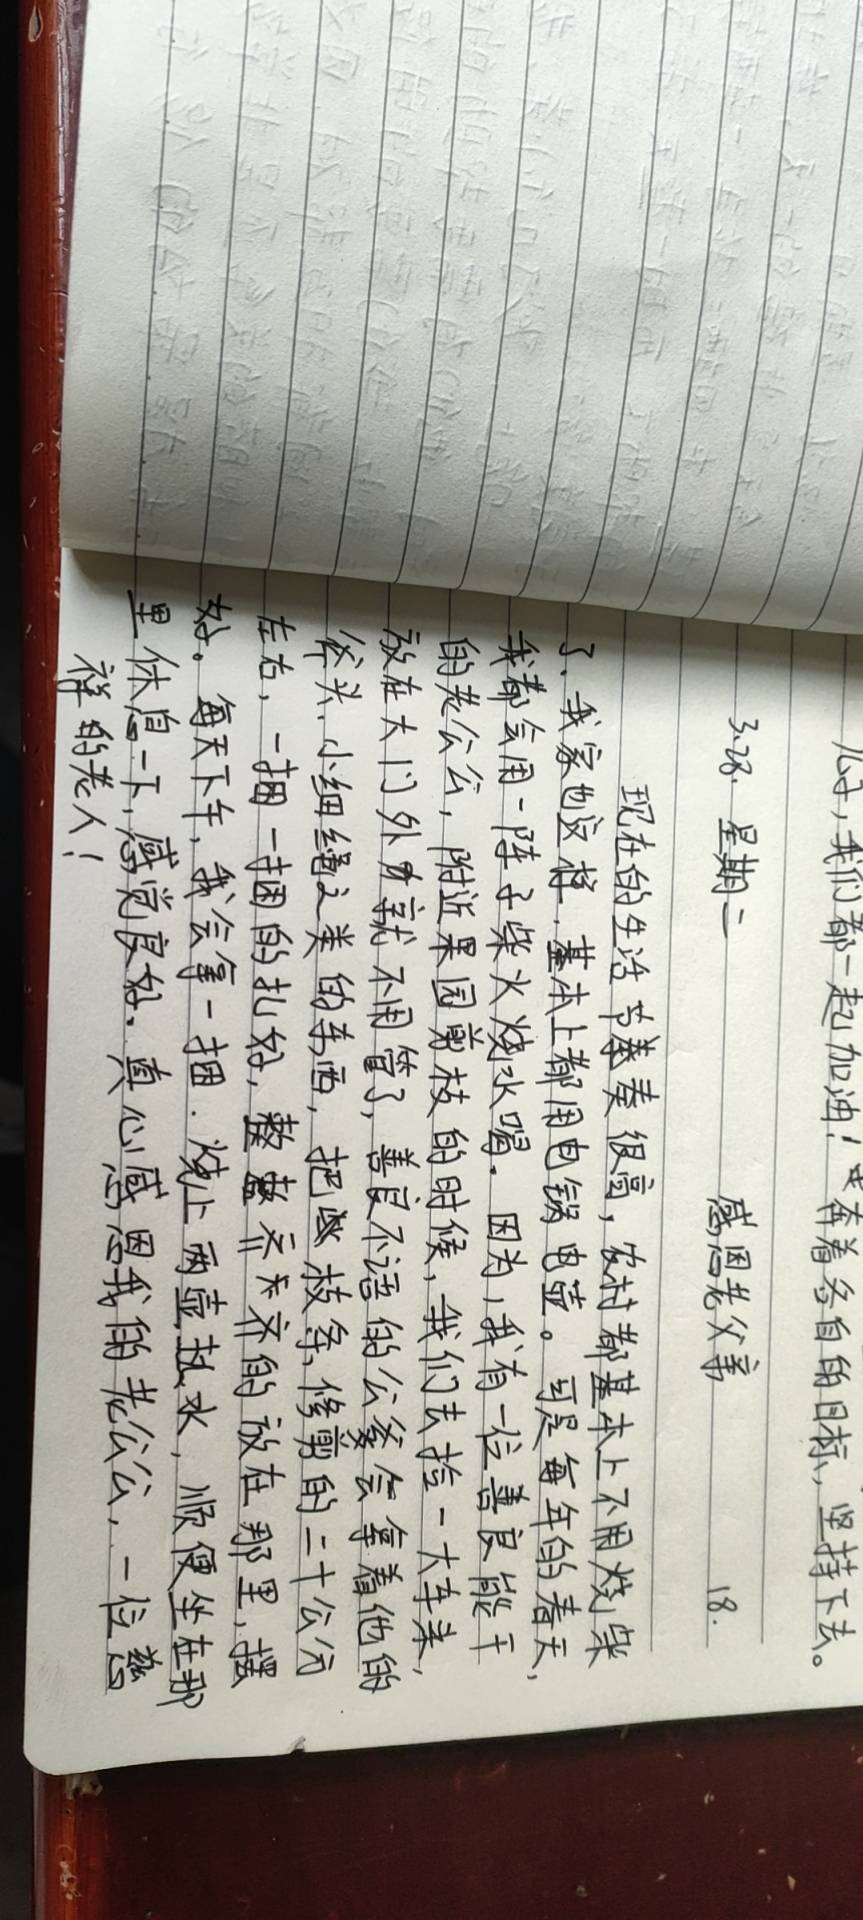 儿子，我们都一起加油！奔着各自的目标，坚持下去。
3.28. 星期二 感恩老父亲 18.
现在的生活节奏很高，农村都基本上不用烧柴
了、我家也这样，基本上都用电锅电壶。可是每年的春天，
我都会用一阵子柴火烧水喝。因为，我有一位善良能干
的老公公，附近果园剪枝的时候，我们去捡一大车来，
放在大门外就不用管了，善良不语的公爹会拿着他的
斧头、小细绳之类的东西，把枝条，修剪的二十公分
左右，一捆一捆的扎好，整整齐齐的放在那里，摆
好。每天下午，我会拿一捆．烧上两壶热水，顺便坐在那
里休息一下，感觉良好。真心感恩我的老公公，一位慈
祥的老人！